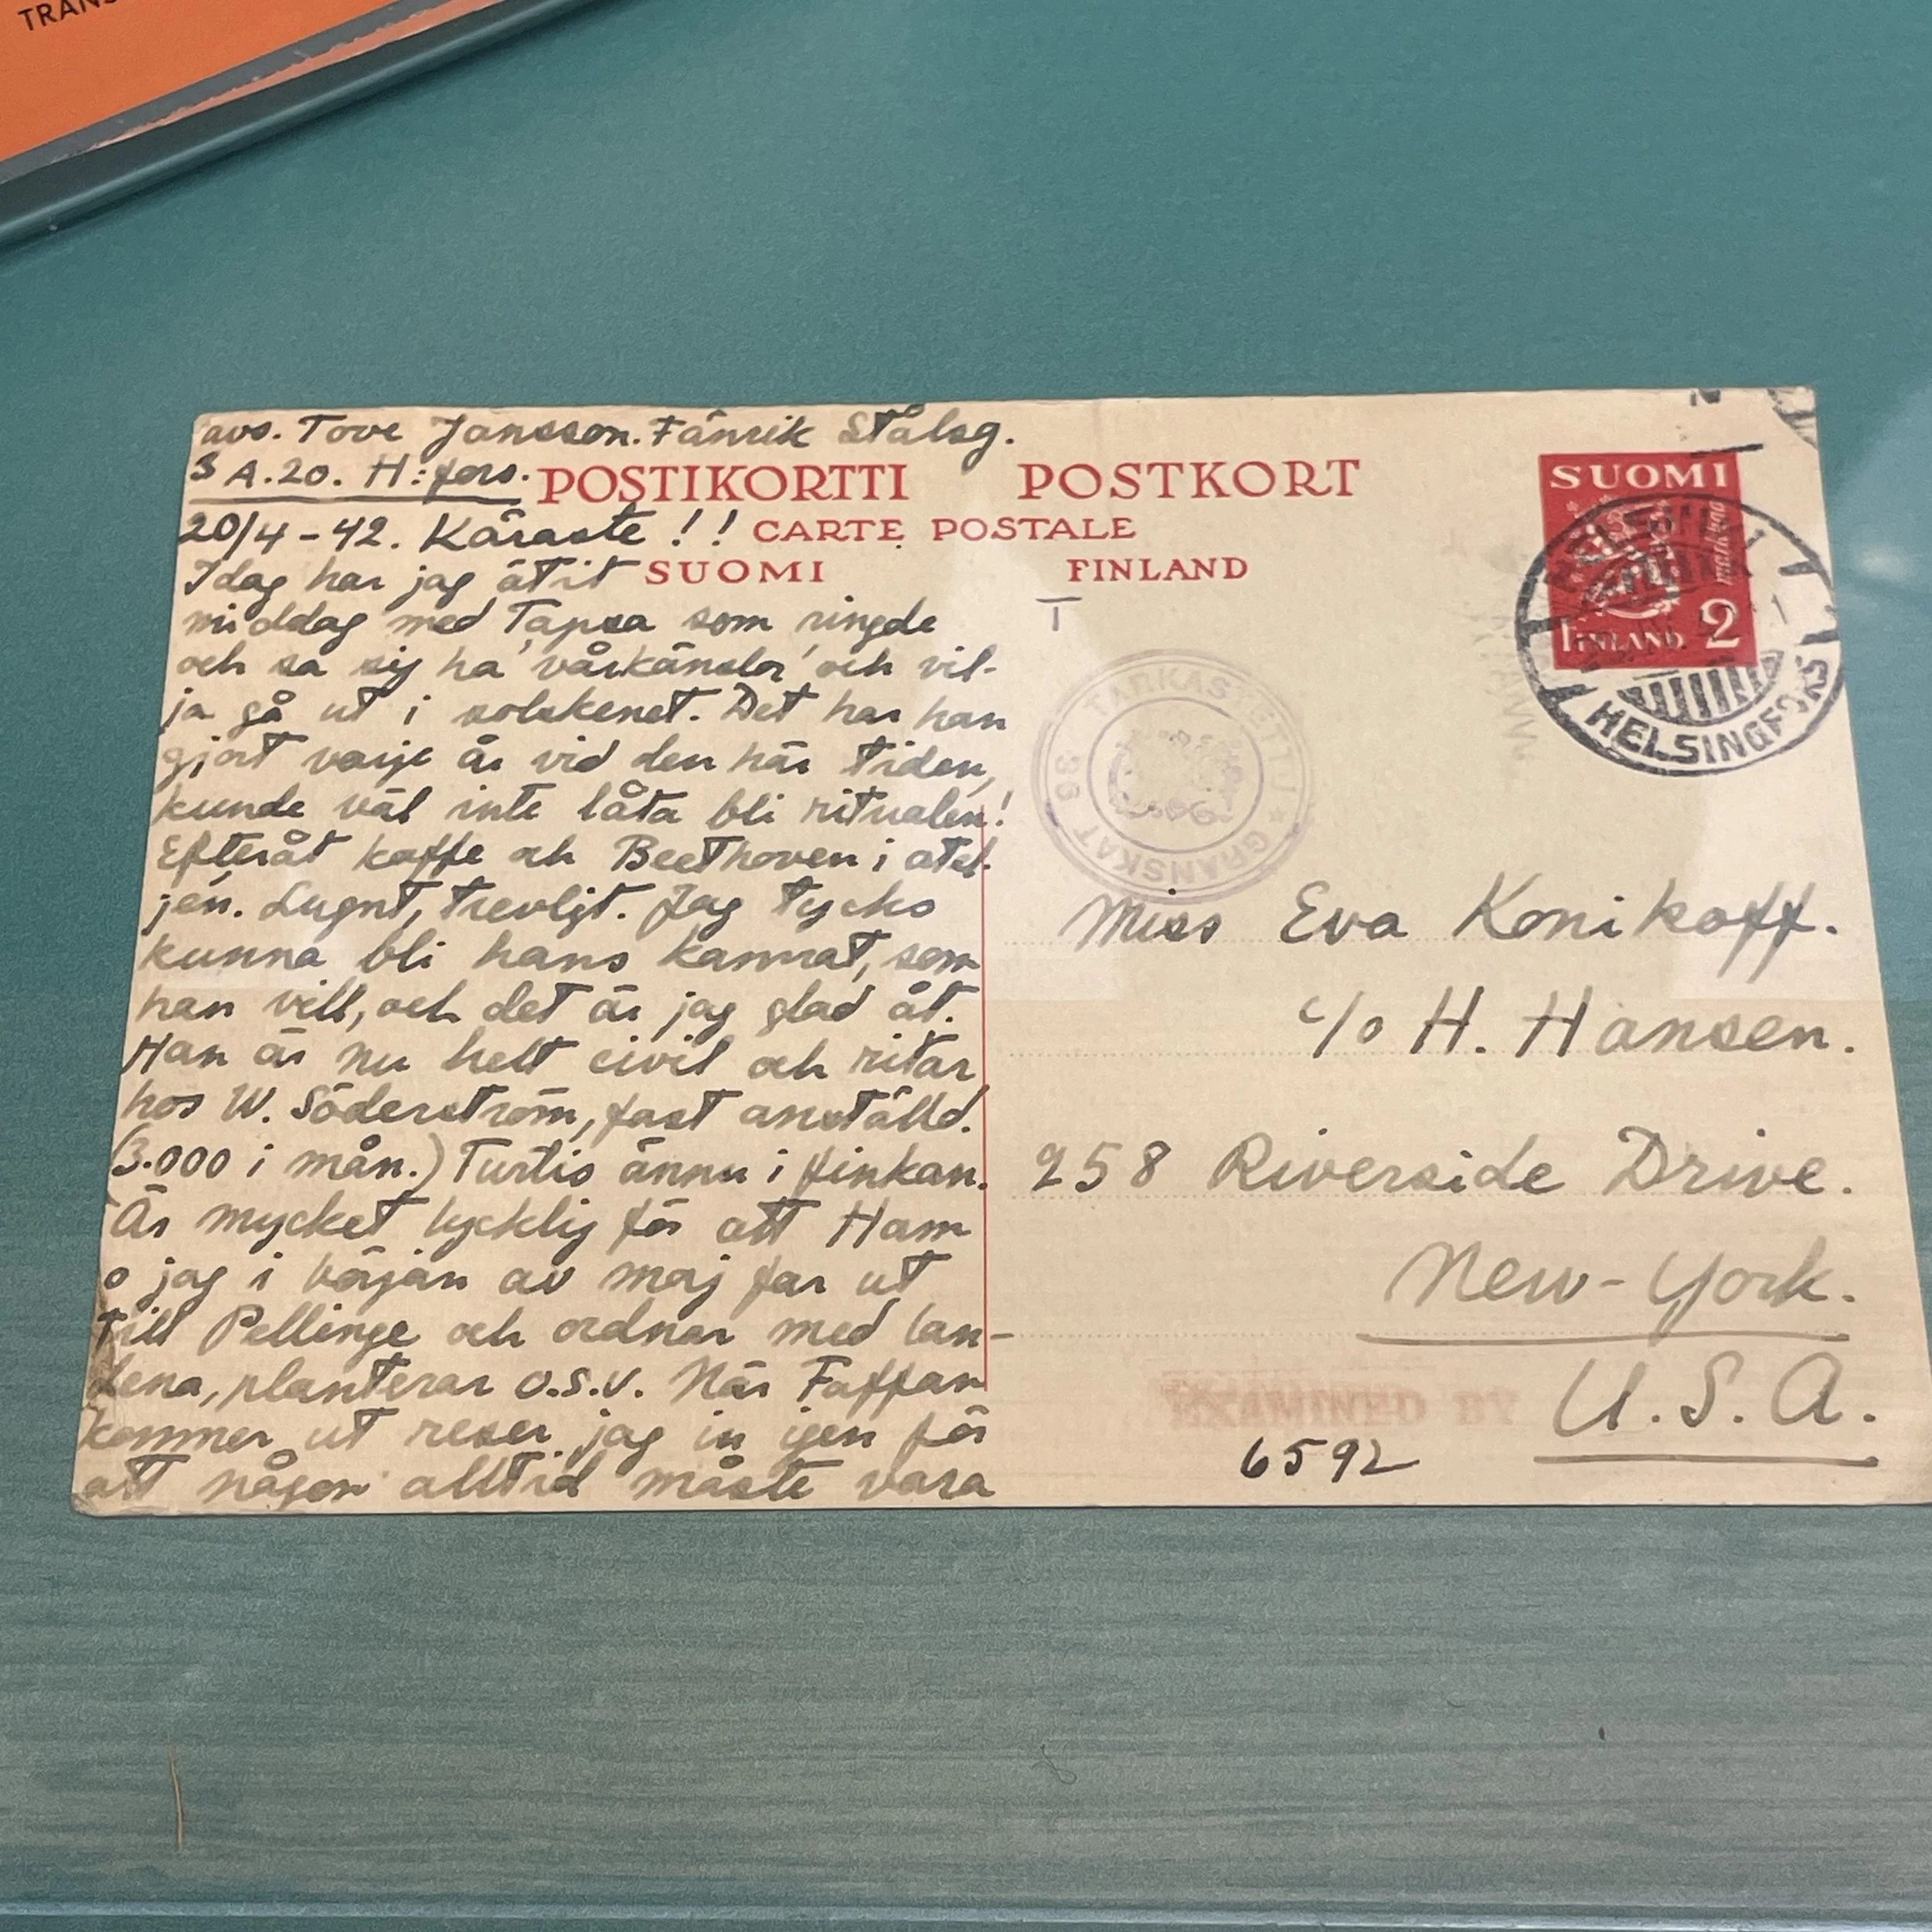 TRANS
avs. Tove Jansson. Fänrik Stålsg.
3 A.20. H:fors.
POSTIKORTTI POSTKORT
CARTE POSTALE
SUOMI FINLAND
20/4-42. Käraste!!
Idag har jag ätit
middag med Tapsa som ringde
och sa sig ha vårkänslor och vil-
ja gå ut i solskenet. Det har han
gjort varje år vid den här tiden,
kunde väl inte låta bli ritualen!
Efteråt kaffe och Beethoven i atel-
jén. Lugnt, trevligt. Jag tycks
kunna bli hans kamrat, som
han vill, och det är jag glad åt.
Han är nu helt civil och ritar
hos W. Söderström, fast anställd.
(3.000 i mån.) Turtis ännu i finkan.
Är mycket lycklig för att Ham
o jag i början av maj far ut
till Pellinge och ordnar med lan-
dena, planterar o.s.v. När Faffan
kommer ut reser jag in igen för
att någon alltid måste vara
SUOMI
markkaa
FINLAND 2
HELSINKI
HELSINGFORS
T
TARKASTETTU * GRANSKAT 36
Miss Eva Konikoff.
c/o H. Hansen.
258 Riverside Drive.
New-York.
U.S.A.
EXAMINED BY
6592